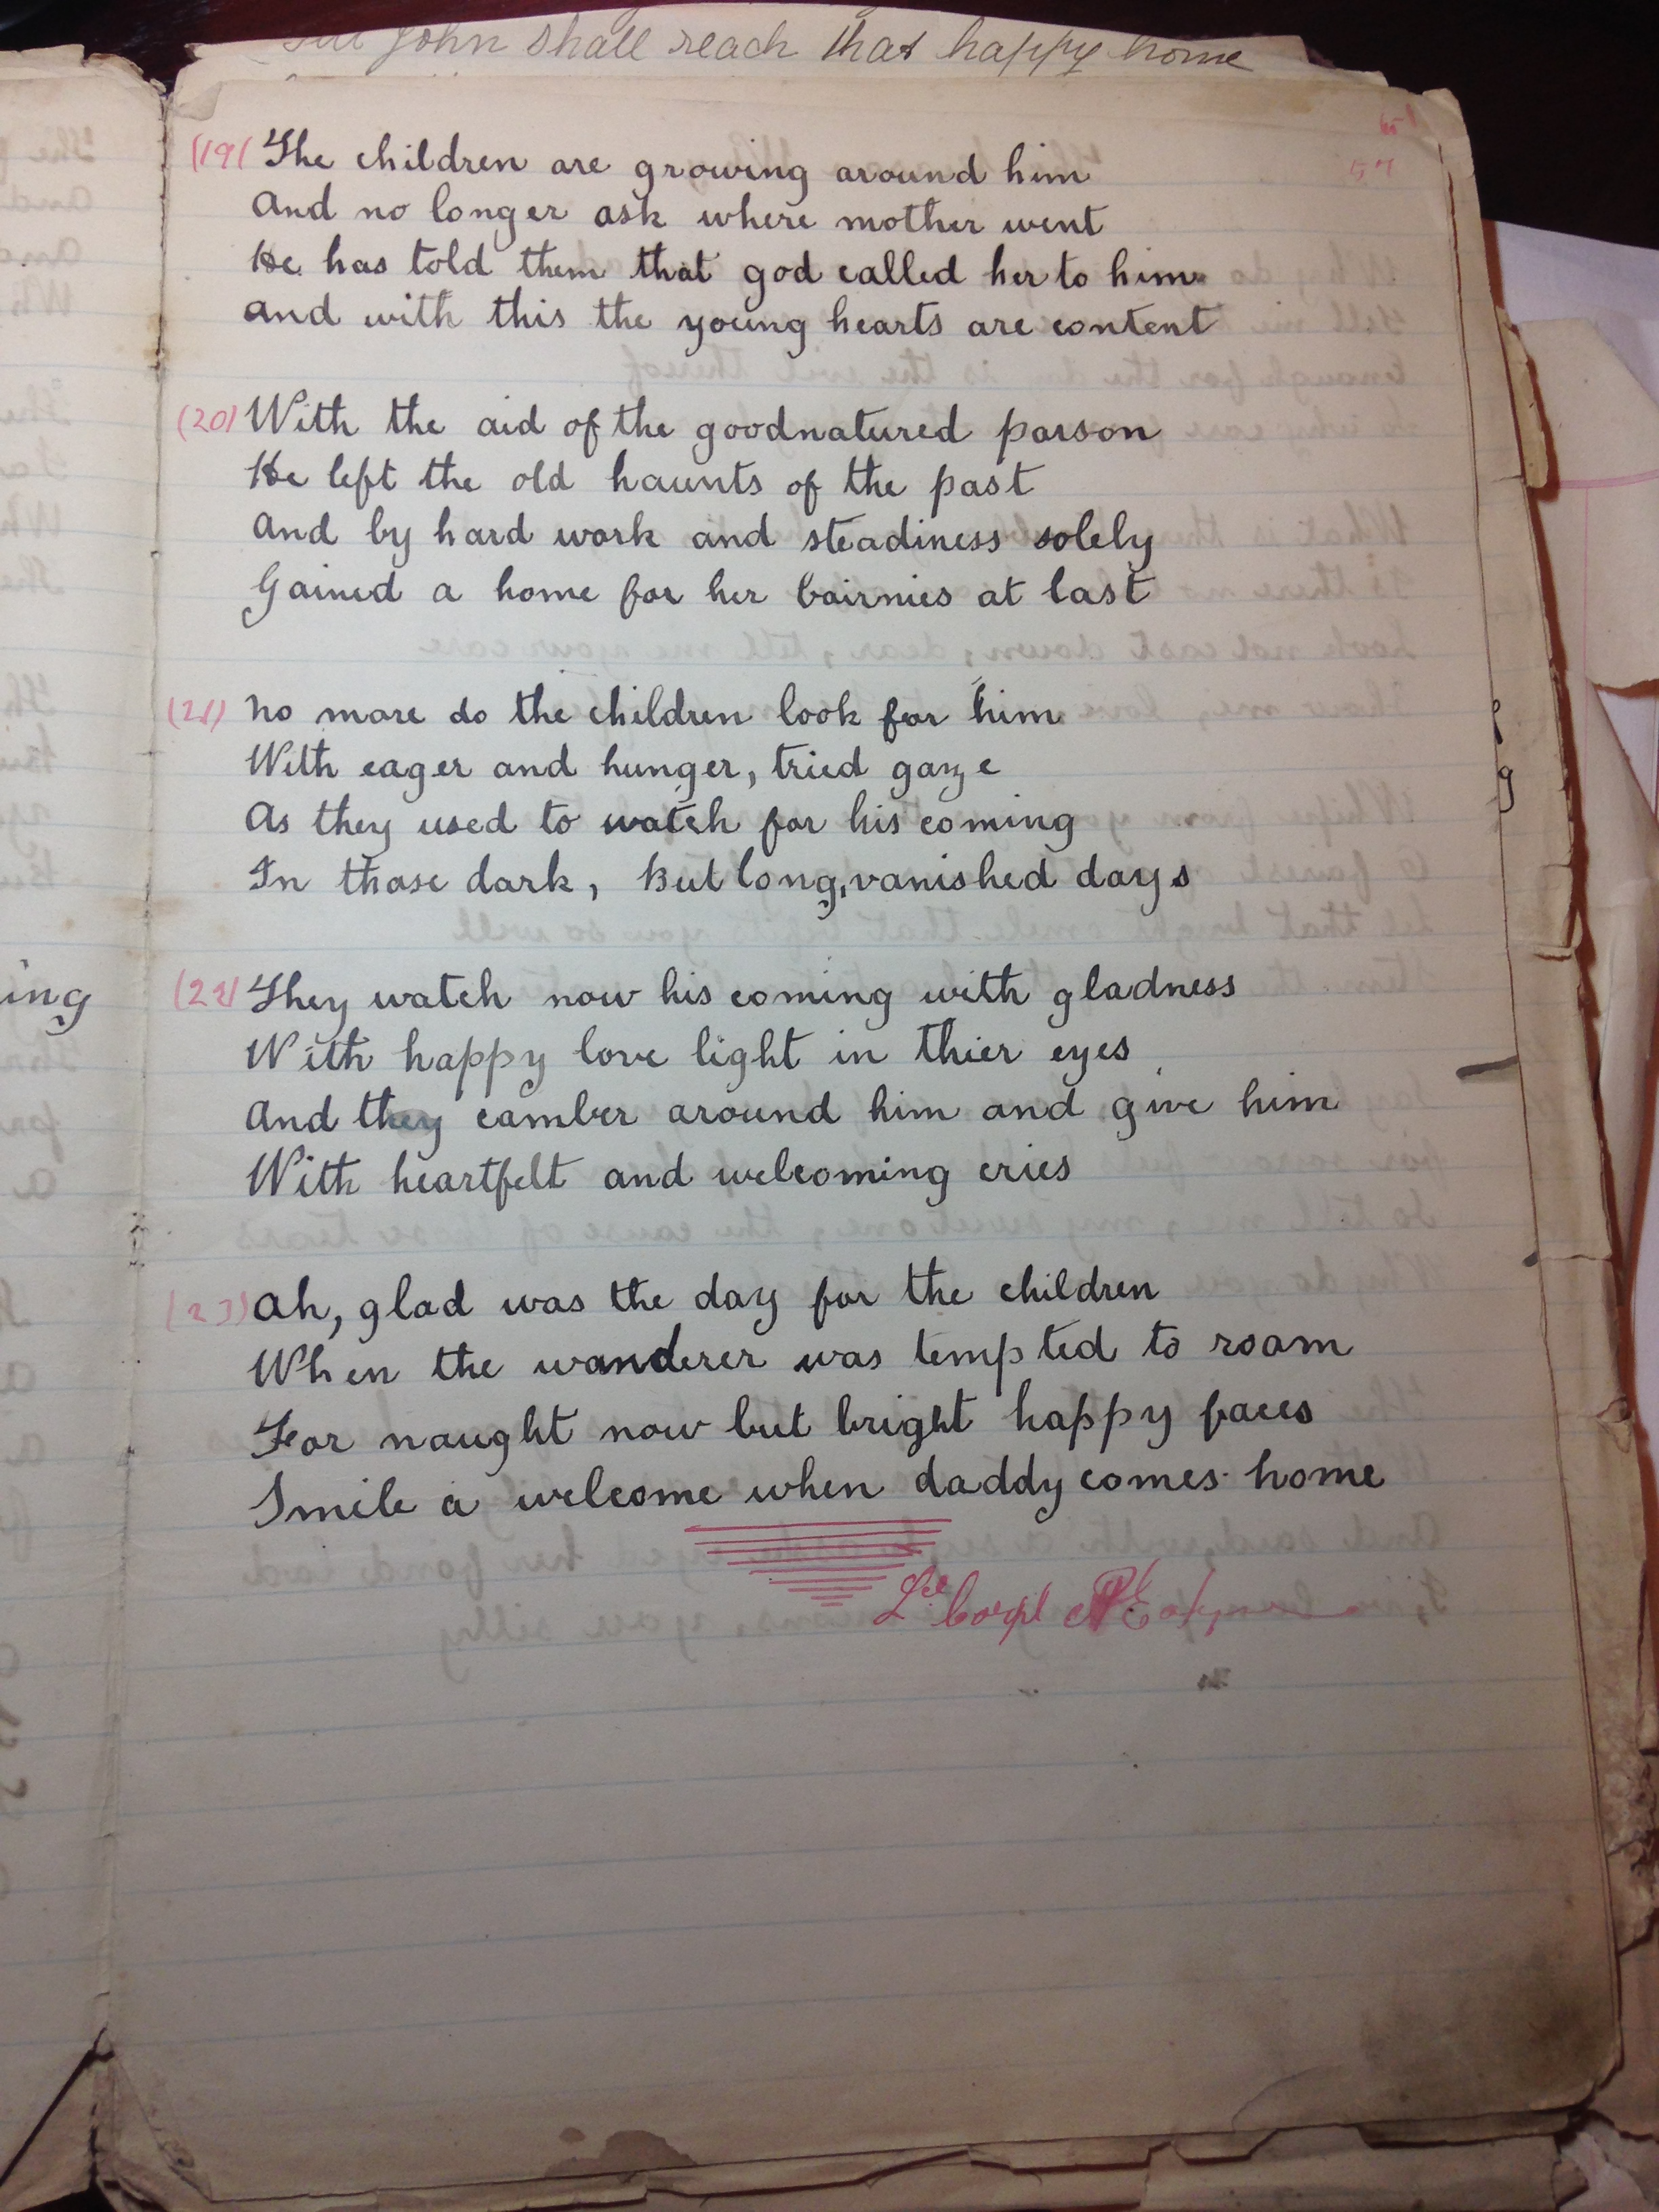 John shall reach that happy home
57
(19( The children are growing around him
And no longer ask where mother went
He has told them that god called her to him
And with this the young hearts are content
(20) With the aid of the goodnatured parson
He left the old haunts of the past
And by hard work and steadiness solely
Gained a home for her bairnies at last
(21) No more do the children look for him
With eager and hunger, tried gaze
As they used to watch for his coming
In those dark, But long, vanished days
(22) They watch now his coming with gladness
With happy love light in thier eyes
And they camber around him and give him
With heartfelt and welcoming cries
(23) Ah, glad was the day for the children
When the wanderer was tempted to roam
For naught now but bright happy faces
Smile a welcome when daddy comes home
Lce Corpl
ing